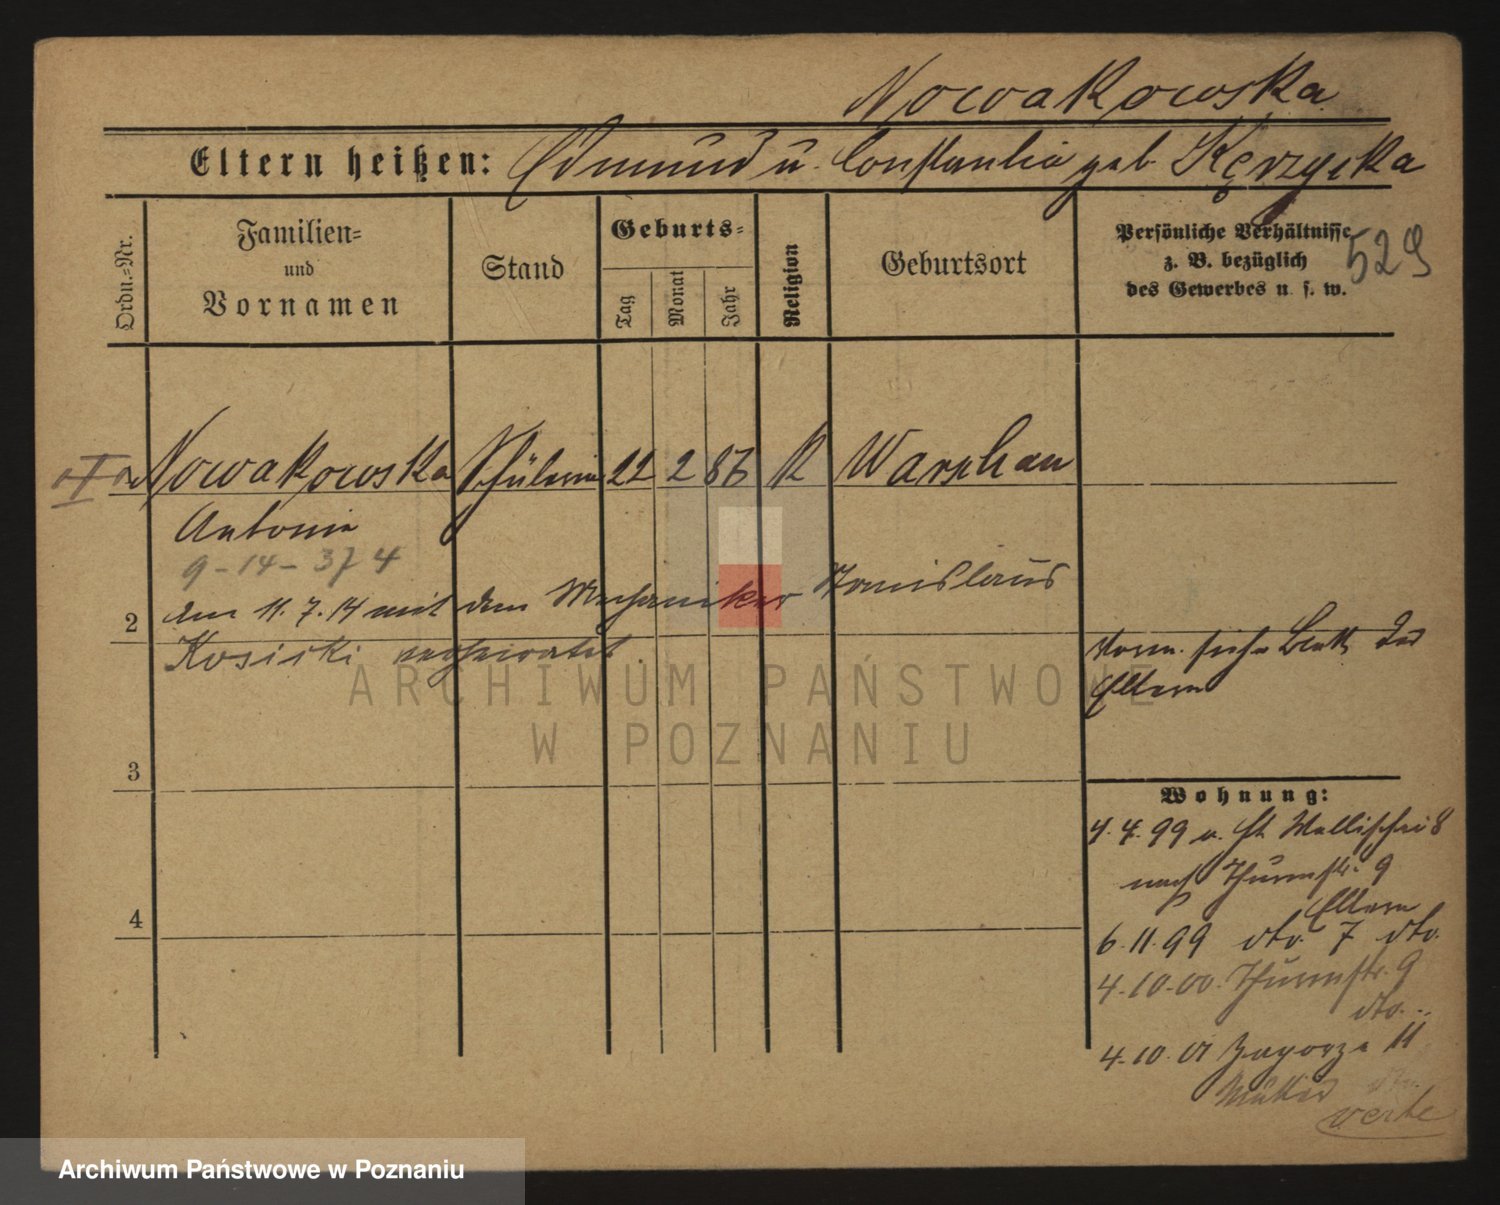 Nowakowska
Eltern heißen: Edmund u. Constantia geb. Kęrzycka
Ordn.=Nr.
Familien=
und
Vornamen
Stand
Geburts=
Tag
Monat
Jahr
Religion
Geburtsort
Persönliche Verhältnisse
z. B. bezüglich
des Gewerbes u. s. w.
529
Nowakowska Schülerin 22 2 86 K Warschau
Antonie
9-14-374
2
am 11.7.14 mit dem Mechaniker Stanislaus
Kosicki verheiratet.
Vorm. siehe Blatt der
Eltern
3
4
Wohnung:
4.4.99 v. St. Wallischei 8
nach Thurmstr. 9
Eltern
6.11.99 dto. 7 dto.
4.10.00. Thurmstr. 9
dto.
4.10.01 Zagorze 11
Mutter
verte
ARCHIWUM PAŃSTWOWE
W POZNANIU
Archiwum Państwowe w Poznaniu